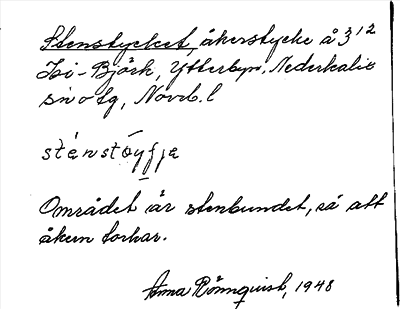 Stenstycket, åkerstycke å 3¹²
Isi-Björk, Ytterbyn, Nederkalix
sn o tg, Norrb. l
sténstöyfja
Området är stenbundet, så att
åkern torkar.
Anna Rönnquist, 1948